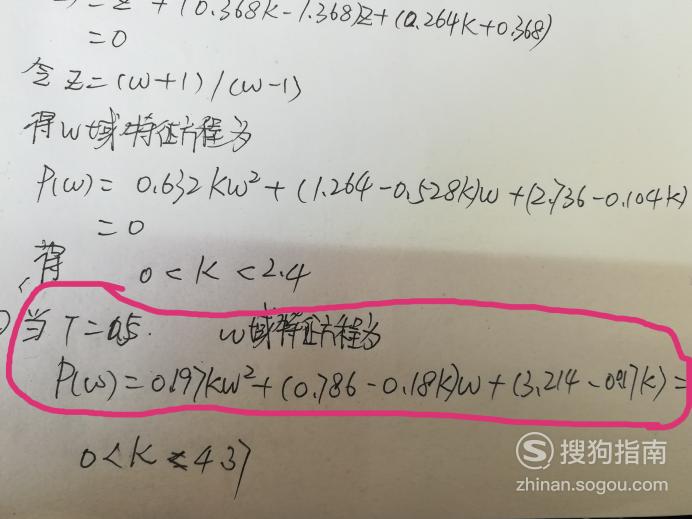 z² + (0.368K-1.368)Z+(0.264K+0.368)
=0
令 Z=(W+1)/(W-1)
得W域特征方程为
P(W)= 0.632KW²+(1.264-0.528K)W+(2.736-0.104K)
=0
得 0<K<2.4
当 T=0.5. W域特征方程为
P(W)=0.197KW²+(0.786-0.18K)W+(3.214-0.017K)=
0<K<4.37
搜狗指南
zhinan.sogou.com